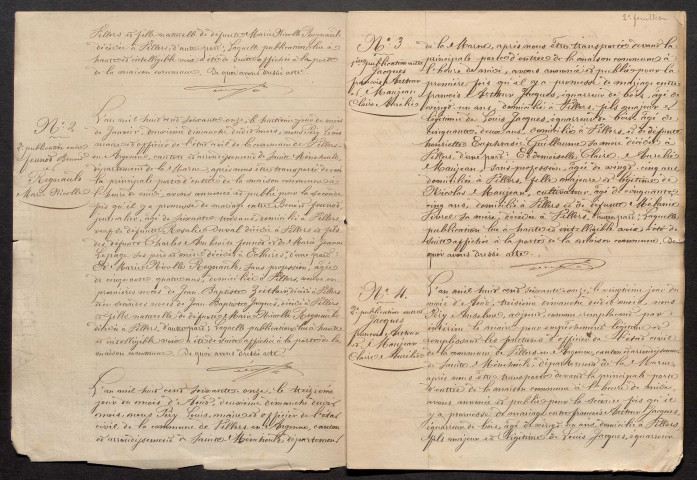 Villers et fille naturelle de défunte Marie Nicolle Regnault
décédée à Villers, d'autre part; laquelle publication lue à
haute et intelligible voix a été de suite affichée à la porte
de la maison commune. De quoi avons dressé acte.
N° 2
2e publication entre
Jeunet Benoit
et Regnault
Marie Nicolle
L'an mil huit cent soixante onze, le huitième jour du mois
de Janvier, deuxième dimanche dudit mois, nous Péry Louis
maire et officier de l'état civil de la commune de Villers-
en-Argonne, canton et arrondissement de Sainte Ménehould,
département de la Marne, après nous être transporté devant la
principale porte d'entrée de la maison commune à
l'heure de midi, avons annoncé et publié pour la seconde
fois qu'il y a promesse de mariage entre Benoit Jeunet,
âgé de soixante trois ans, domicilié à Villers
veuf de défunte Rosalie Duval décédée à Villers et fils
des défunts Charles Ambroise Jeunet et de Marie Jeanne
Lepage ses père et mère décédés à d'une part;
Et Marie Nicolle Regnault, sans profession, âgée
de cinquante quatre ans, domiciliée à Villers, veuve en
premières noces de Jean Baptiste décédé à Villers
et en dernières noces de Jean Baptiste Jaques, décédé à Villers
et fille naturelle de défunte Marie Nicolle Regnault
décédée à Villers, d'autre part; laquelle publication lue à haute
et intelligible voix a été de suite affichée à la porte de la
maison commune. De quoi avons dressé acte.
L'an mil huit cent soixante onze, le treizième
jour du mois d'Août, deuxième dimanche dudit
mois, nous Péry Louis, maire et officier de l'état
civil de la commune de Villers en Argonne, canton
et arrondissement de Sainte Ménehould, département
2e feuillet
N° 3
1ère publication entre
Jacques
François Arthur
et Maujean
Claire Aurélie
de la Marne, après nous être transporté devant la
principale porte d'entrée de la maison commune à
l'heure de midi, avons annoncé et publié pour la
première fois qu'il y a promesse de mariage entre
François Arthur Jacques, équarrisseur de bois, âgé de
vingt un ans, domicilié à Villers, fils majeur et
légitime de Louis Jacques, équarrisseur de bois, âgé de
cinquante deux ans, domicilié à Villers, et de défunte
Henriette Euphrasie Guillaume sa mère décédée à
Villers, d'une part; Et Demoiselle Claire Aurélie
Maujean, sans profession, âgée de vingt cinq ans
domiciliée à Villers, fille majeure et légitime de
Nicolas Maujean, cultivateur, âgé de cinquante
cinq ans, domicilié à Villers et de défunte Mélanie
sa mère, décédée à Villers, d'autre part; laquelle
publication lue à haute et intelligible voix a été de
suite affichée à la porte de la maison commune. De
quoi avons dressé acte.
N° 4.
2e publication entre
Jacques
François Arthur
et Maujean
Claire Aurélie
L'an mil huit cent soixante onze, le vingtième jour du
mois d'Août, troisième dimanche dudit mois, nous
adjoint remplissant par
intérim le maire pour empêchement légitime et
remplissant les fonctions d'officier de l'état civil
de la commune de Villers en Argonne, canton et arrondissement
de Sainte Ménehould, département de la Marne
après nous être transporté devant la principale porte
d'entrée de la maison commune à l'heure de midi
avons annoncé et publié pour la seconde fois qu'il
y a promesse de mariage entre François Arthur Jacques,
équarrisseur de bois, âgé de vingt un ans, domicilié à Villers
fils majeur et légitime de Louis Jacques, équarrisseur